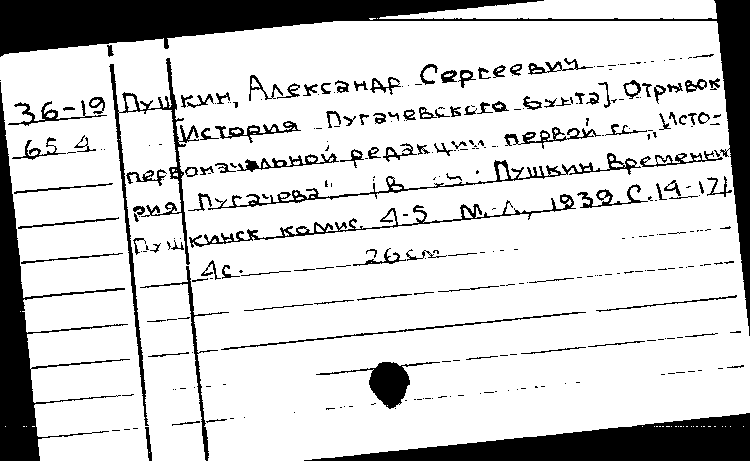 36-19 Пушкин, Александр Сергеевич.
65 4 [История Пугачевского бунта]. Отрывок
первоначальной редакции первой гл. „Исто-
рия Пугачева“. (В кн.: Пушкин. Временник
Пушкинск. комис. 4-5. М.-Л., 1939. С. 14-17)
4с. 26см